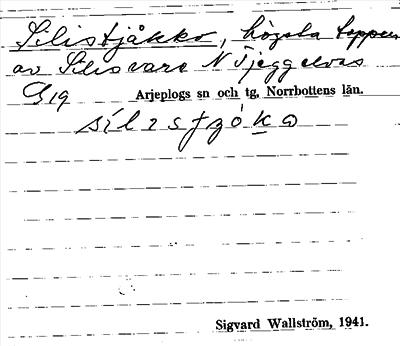 Silistjåkko, högsta toppen
av Silisvare N Tjeggelvas
G19 Arjeplogs sn och tg, Norrbottens län.
silistjåko
Sigvard Wallström, 1941.